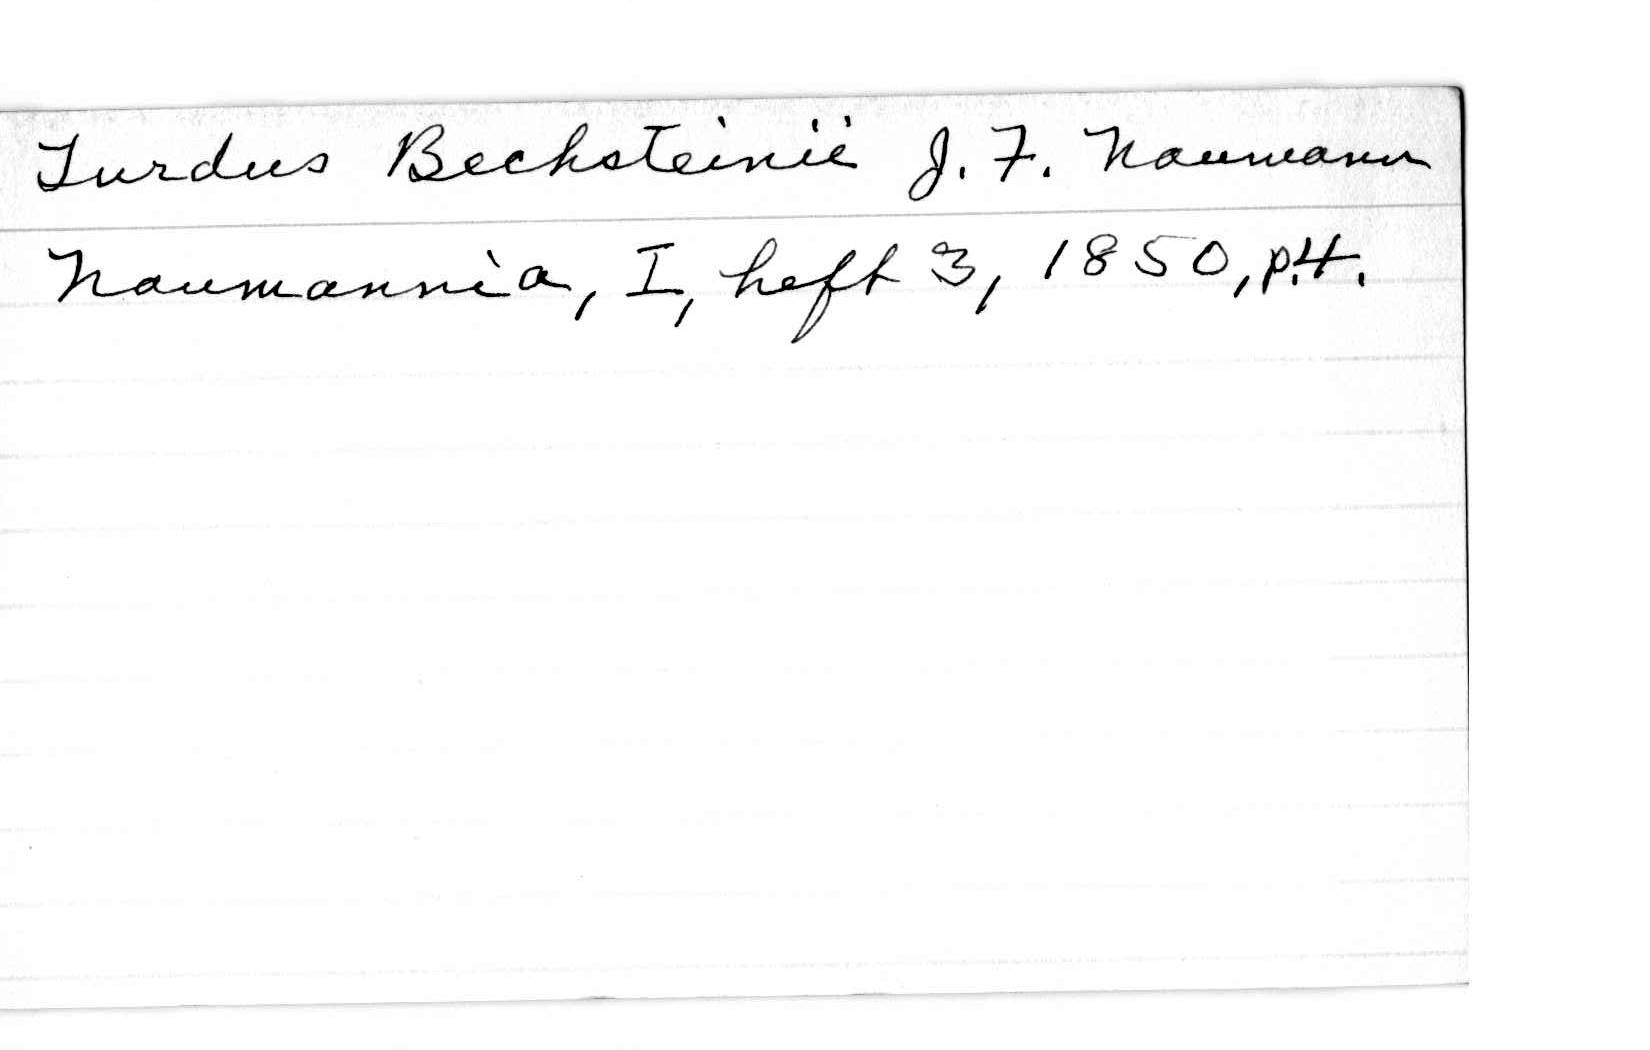 Turdus Bechsteinii J. F. Naumann
Naumannia, I, heft 3, 1850, p.4.